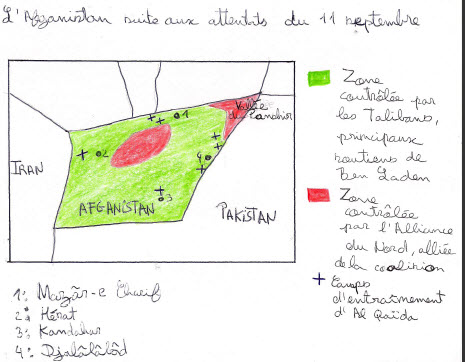 L'Afganistan suite aux attentats du 11 septembre
Vallée
du Panchir
IRAN
AFGANISTAN
PAKISTAN
1
2
3
4
Zone
contrôlée par
les Talibans,
principaux
soutiens de
Ben Laden
Zone
contrôlée
par l'Alliance
du Nord, alliée
de la coalition
Camps
d'entraînement
d'Al Qaïda
1: Mazâr-e Charif
2: Hérat
3: Kandahar
4: Djalâlâbâd